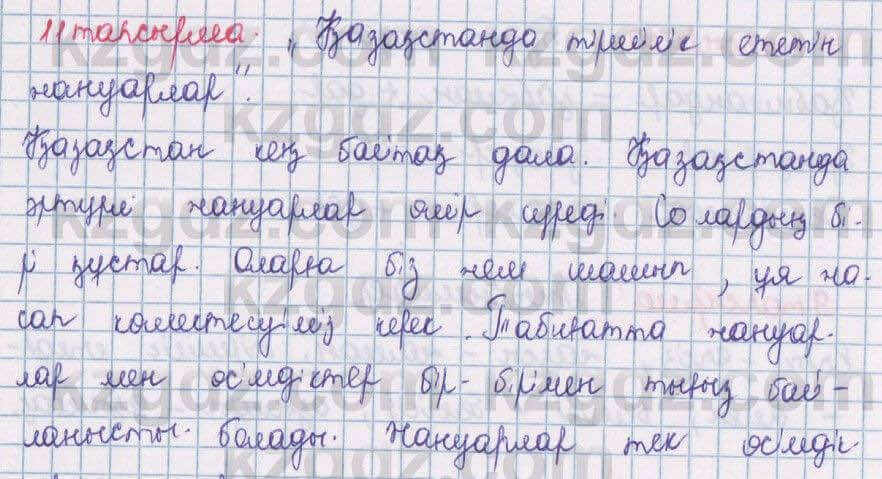 11 тапсырма. "Қазақстанда тіршілік ететін
жануарлар".
Қазақстан кең байтақ дала. Қазақстанда
әртүрлі жануарлар өмір сүреді. Солардың бі-
рі құстар. Оларға біз жем шашып, ұя жа-
сап көмектесуіміз керек. Табиғатта жануар-
лар мен өсімдіктер бір-бірімен тығыз бай-
ланысты. болады. Жануарлар тек өсімдік
kzgdz.com